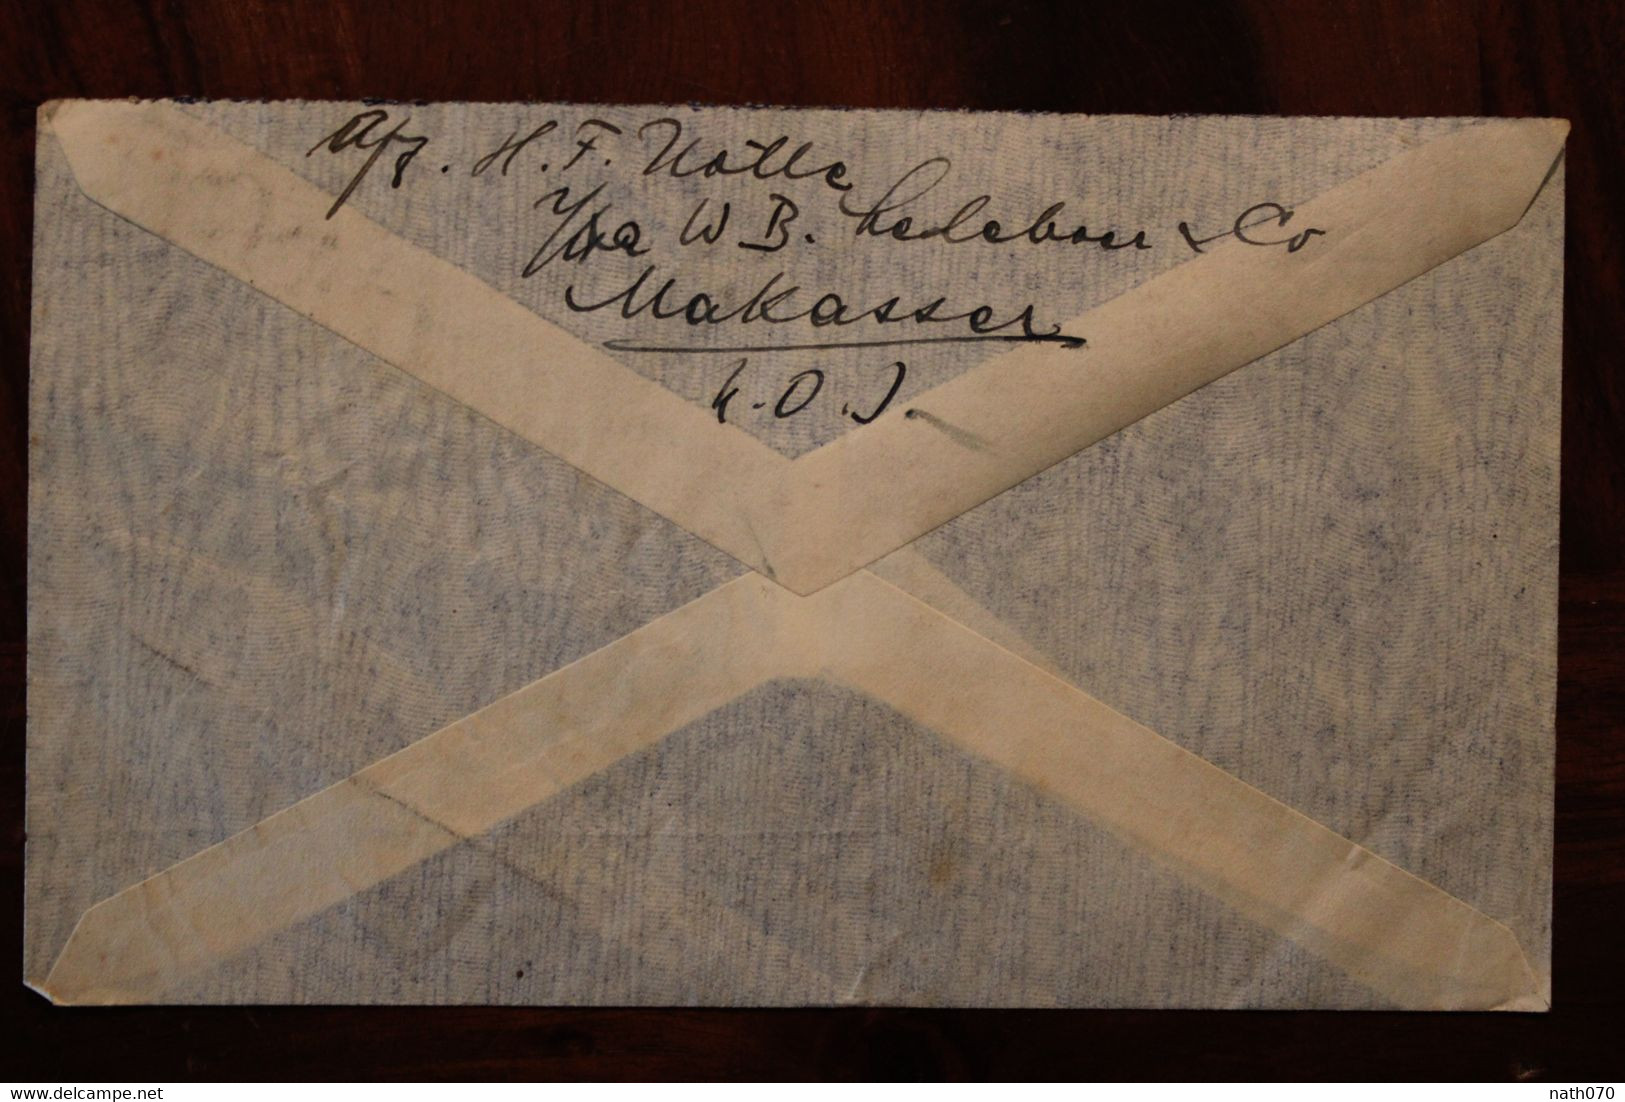 Afz. H. F. Nolle
p/a W B. Ledeboer & Co
Makasser
N.O.I.
delcampe.net
nath070